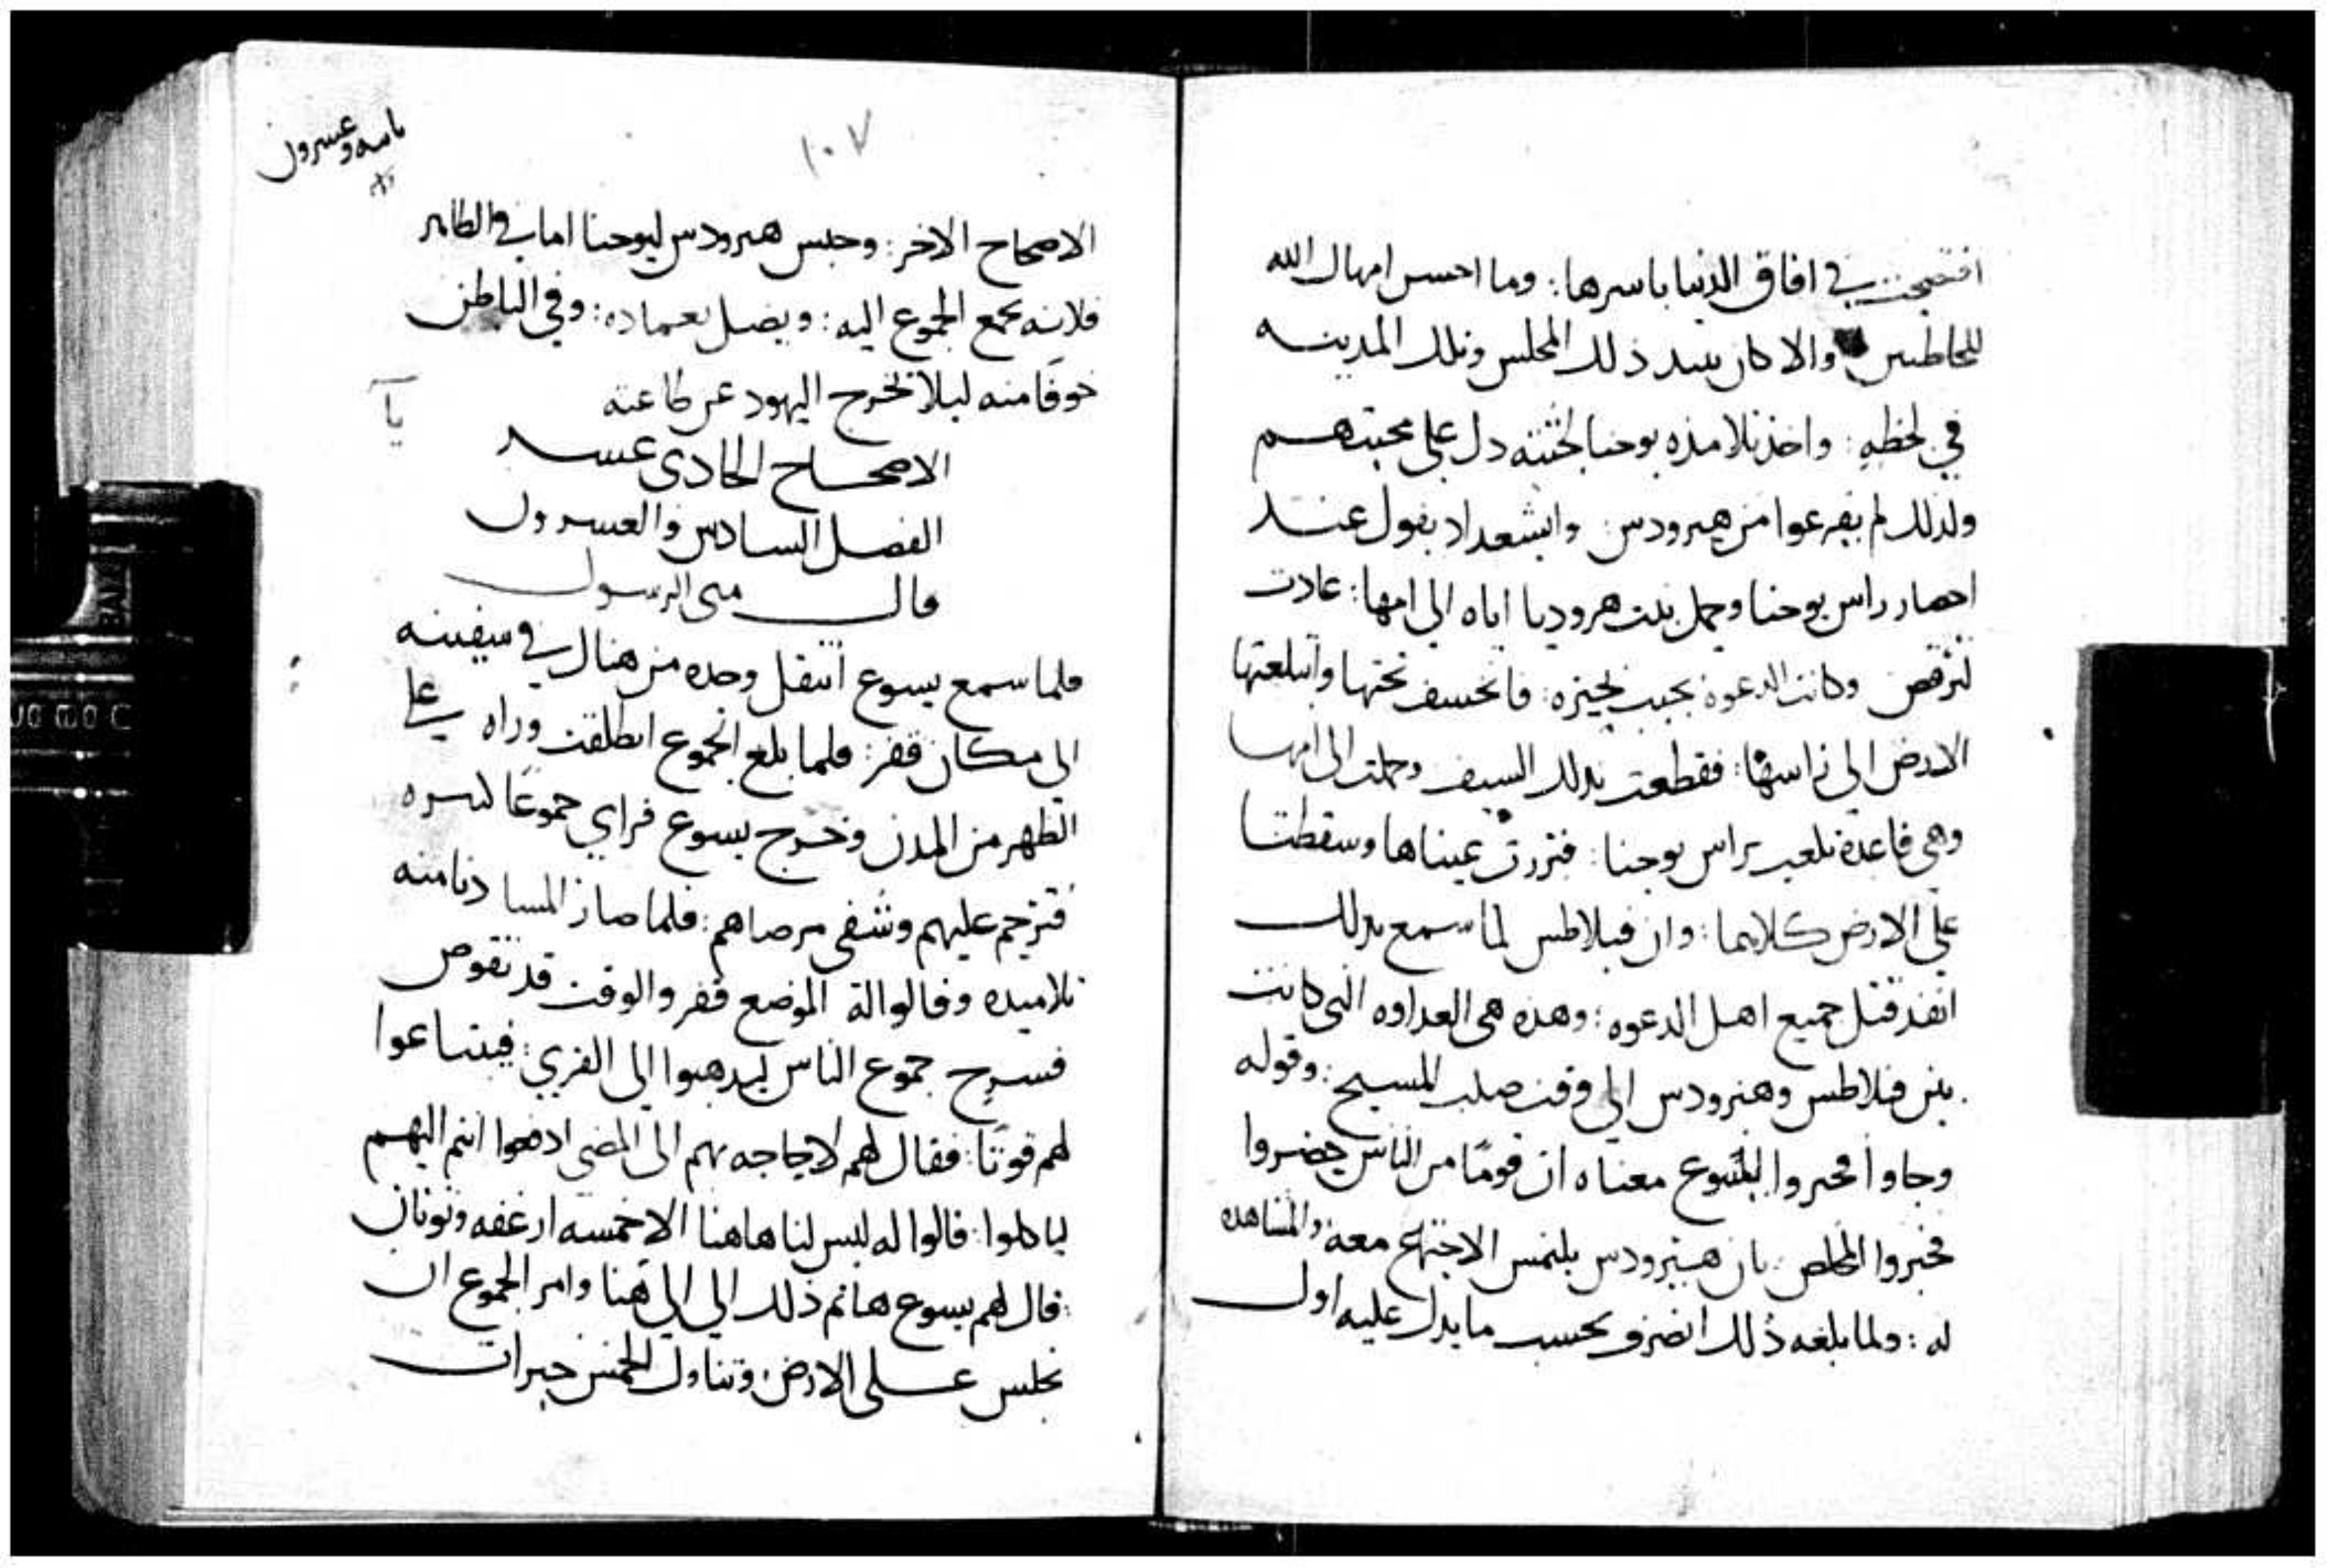 افتضحت في افاق الدنيا باسرها: وما احسن امهال الله
للخاطيين والا كان يبيد ذلك المجلس وتلك المدينه
في لحظه: واخذ تلامذه يوحنا لجثته دل على محبتهم
ولذلك لم يفزعوا من هيرودس وايشعداد يقول عند
احضار راس يوحنا وحمل بنت هروديا اياه الي امها: عادت
لترقص وكانت الدعوة بجنب بحيره: فانخسف تحتها وابتلعتها
الارض الي راسها: فقطعت بذلك السيف وحملت الى امها
وهي قاعدة تلعب براس يوحنا: فنزرت عيناها وسقطتا
علي الارض كلاهما: وان فيلاطس لما سمع بذلك
انفذ قتل جميع اهل الدعوه: وهذه هي العداوه التي كانت
بين فيلاطس وهيرودس الي وقت صلب المسيح: وقوله
وجاوا فخبروا ليسوع معناه ان قومًا من الناس حضروا
فخبروا المخلص بان هيرودس يلتمس الاجتماع معه والمشاهده
له: ولما بلغه ذلك انصرف بحسب ما يدل عليه اول
١٠٧
الاصحاح الاخر: وحبس هيرودس ليوحنا اما في الظاهر
فلانه يجمع الجموع اليه: ويضل بعماده: وفي الباطن
خوفًا منه ليلا تخرج اليهود عن طاعته
يا
الاصحاح الحادى عشر
الفصل السادس والعشرون
قال متى الرسول
فلما سمع يسوع انتقل وحده من هناك في سفينه
الي مكان قفر: فلما بلغ الجموع انطلقت وراه علي
الظهر من المدن وخرج يسوع فراي جموعًا كثيره
فترحم عليهم وشفى مرضاهم: فلما صار المسا دنا منه
تلاميده وقالوا لة الموضع قفر والوقت قد تقوض
فسرح جموع الناس ليذهبوا الى القري: فيبتاعوا
لهم قوتًا: فقال لهم لا حاجه بهم الى المضى ادفعوا انتم اليهم
لياكلوا: قالوا له ليس لنا هاهنا الا خمسه ارغفه ونونان
قال لهم يسوع هاتم ذلك الي الي هنا وامر الجموع ان
تجلس على الارض وتناول الخمس خبزات